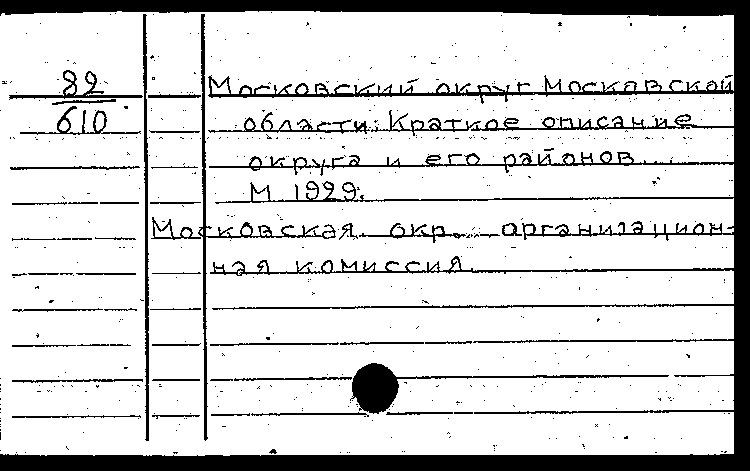 82
610
Московский округ Московской
области: Краткое описание
округа и его районов.
М 1929.
Московская окр. организацион-
ная комиссия.